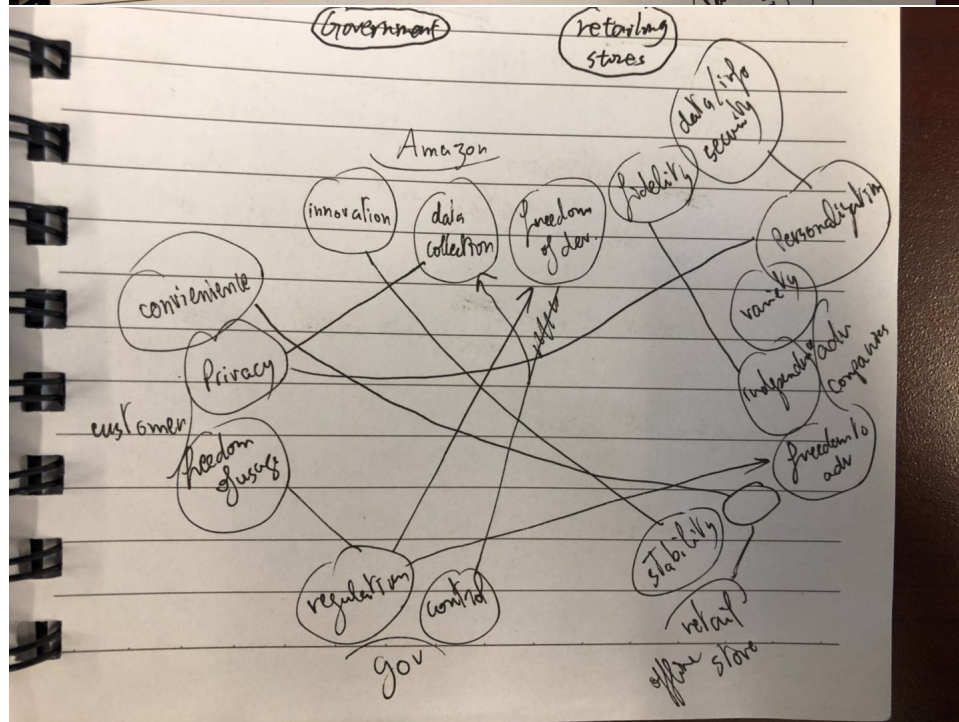 Government
retailing
stores
data/info
security
Amazon
innovation
data
collection
freedom
of dev.
fidelity
Personalization
convienience
variety
Privacy
independing
adv
companies
customer
freedom
of usage
freedom to
adv
stability
regulation
control
retail
offline store
gov